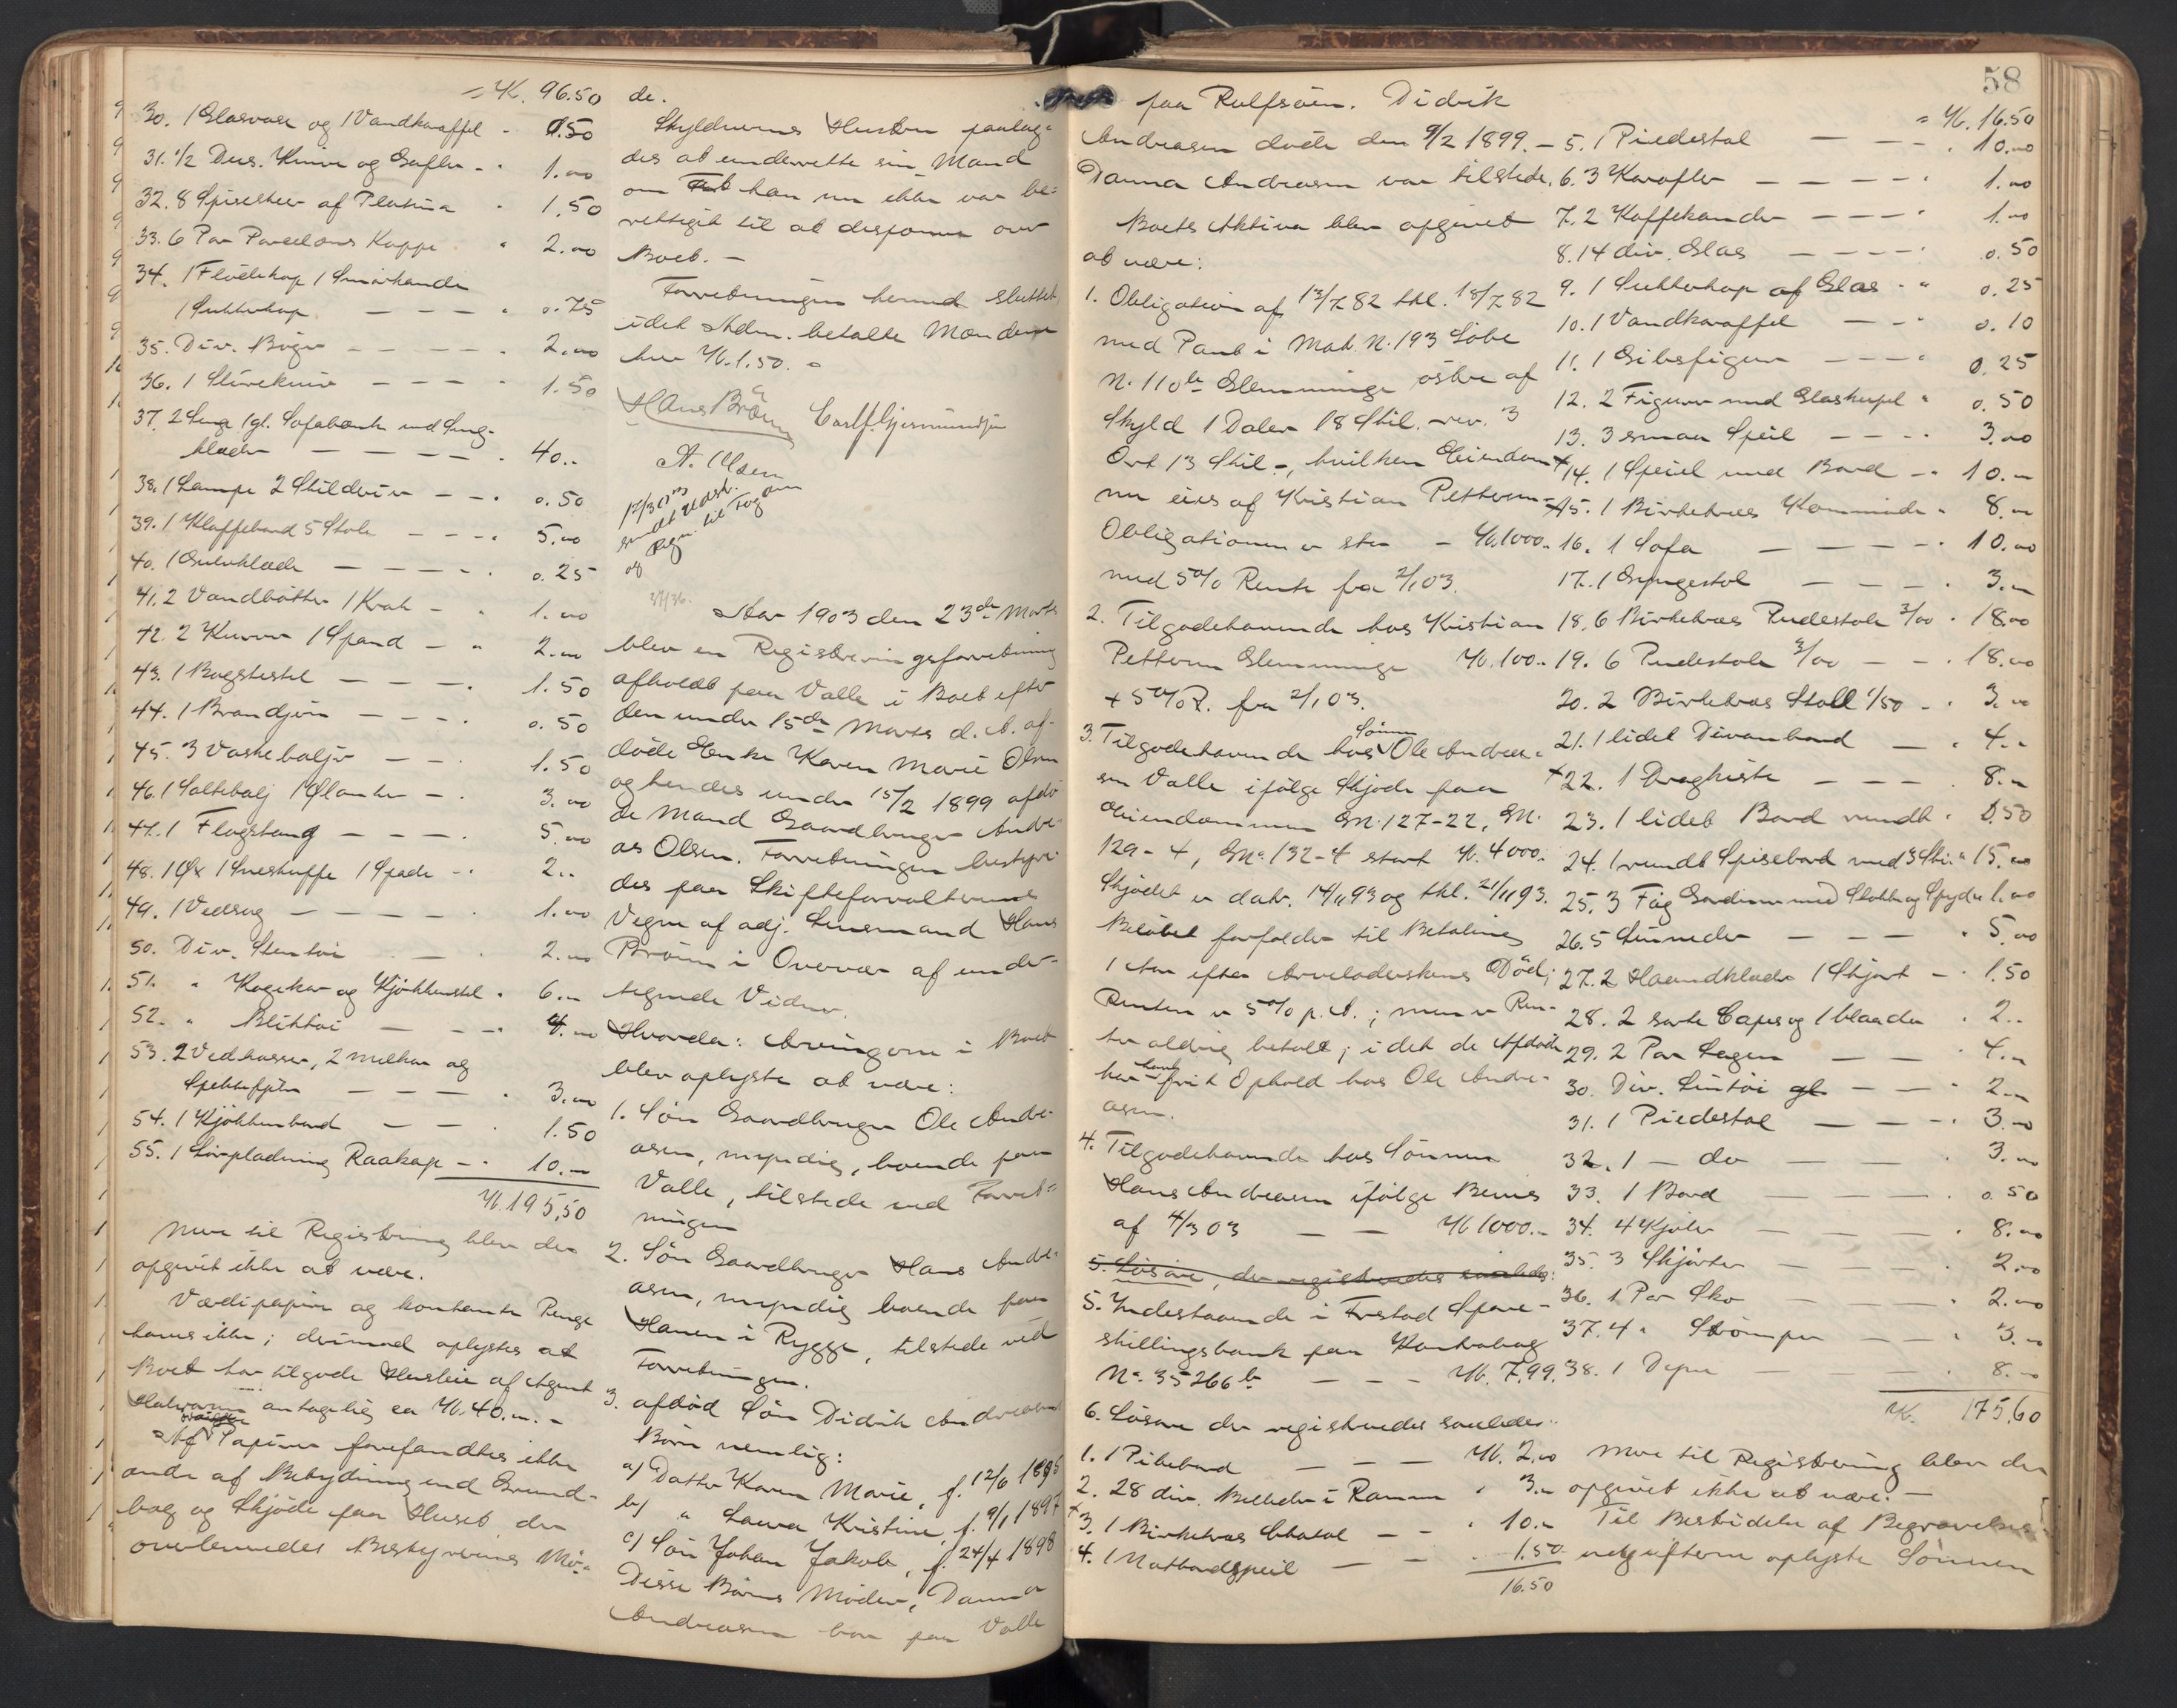 = Kr. 96.50
30. 1 Glasvase og 1 Vandkaraffel - 0.50
31. 1/2 Dus. Knive og Gafler - 1.00
32. 8 Spiseskeer af Platina - 1.50
33. 6 Par Porcelæns Kopper " 2.00
34. 1 Flödekop 1 Smörkande
1 Sukkerkop - - - - " 0.75
35. Div. Böger - - - - - 2.00
36. 1 Strekniv - - - - 1.50
37. 2 Seng 1 gl. Sofabænk med Seng-
klæder - - - - - - 40..
38. 1 Lampe 2 Skilderier - - - 0.50
39. 1 Klaffebord 5 Stole - - - - 5.00
40. 1 Gulvklæde - - - - - 0.25
41. 2 Vandbötter 1 Krak - " 1.00
42. 2 Kurver 1 Spand - " 2.00
43. 1 Bogstestel - - - - 1.50
44. 1 Brandjern - - - - 0.50
45. 3 Vaskebaljer - - - 1.50
46. 1 Saltebalj 1 Ølanker - - 3.00
47. 1 Flagstang - - - - 5.00
48. 1 Øx 1 Sneskuffe 1 Spade - - 2..
49. 1 Vedsag - - - - - 1.00
50. Div. Stentöi - - 2.00
51. " Kogekar og Kjökkenstel " 6.00
52. " Bliktöi - - - 4.00
53. 2 Vedkasser, 2 Melkar og
- - - - 3.00
54. 1 Kjökkenbord - - - 1.50
55. 1 Raakop - - 10.-
Kr. 195,50
Mere til Registrering blev der
opgivet ikke at være.
Værdipapirer og kontante Penge
haves ikke; derimod oplystes at
Boet har tilgode Husleie af Agent
Halvorsen antagelig ca Kr. 40.00. -
Af Papirer forefandtes ikke
andre af Betydning end Grund-
bog og Skjöde paa Huset, der
overleveredes Bestyrerens Mö-
de.
Skyldnerens Hustru paalag-
des at underrette sin Mand
om at han nu ikke var be-
rettiget til at disponere over
Boet. -
Forretningen hermed sluttet
idet Adm. betalte Mændene
hver Kr. 1.50. -
Hans Bröen Carl J. Gjermundsen
A. Olsen
17/3 03
sendt Udskr.
og Regn. til Fogden
Aar 1903 den 23de Marts
blev en Registreringsforretning
afholdt paa Valle i Boet efter
den under 15de Marts d. A. af-
döde Enke Karen Marie Olsen
og hendes under 15/2 1899 afdö-
de Mand Gaardbruger Andre-
as Olsen. Forretningen bestyre-
des paa Skifteforvalterens
Vegne af adj. Lensmand Hans
Bröen i Overvær af under-
tegnede Vidner.
Hvorda: Arvingerne i Boet
blev oplyste at være:
1. Sön Gaardbruger Ole Andre-
asen, myndig, boende paa
Valle, tilstede ved Forret-
ningen
2. Sön Gaardbruger Hans Andre-
asen, myndig boende paa
Hanen i Rygge, tilstede ved
Forretningen.
3. afdöd Sön Didrik Andreasens
Börn nemlig:
a) Datter Karen Marie, f. 12/6 1895
b) " Laura Kristine, f. 9/1 1897
c) Sön Johan Jakob, f. 24/4 1898
Disse Börns Moder, Danna
Andreasen bor paa Valle
58
paa Rolfsöen. Didrik
Andreasen döde den 9/2 1899. -
Danna Andreasen var tilstede.
Boets Aktiva blev opgivet
at være:
1. Obligation af 13/7 82 thl. 18/7 82
med Pant i Mat. N. 193 Löbe
N. 110 b Glemminge östre af
Skyld 1 Daler 18 Skil. rev. 3
Ort 13 Skil -, hvilken Eiendom
nu eies af Kristian Pettersen -
Obligationen er stor - Kr. 1000..
med 5% Rente fra 2/1 03.
2. Tilgodehavende hos Kristian
Pettersen Glemminge Kr. 100..
+ 5% R. fra 2/1 03.
3. Tilgodehavende hos Sönnen Ole Andrea-
sen Valle ifölge Skjöde paa
Eiendommen GN. 127-22, GN.
129-4, GN. 132-4 stort Kr. 4000.
Skjödet er datr. 14/11 93 og thl. 21/11 93.
Belöbet forfalder til Betaling
1 Aar efter Arveladerskens Död;
Renten er 5% p. A.; men er Ren-
ter aldrig betalt; idet de Afdöde
har havt frit Ophold hos Ole Andre-
asen.
4. Tilgodehavende hos Sönnen
Hans Andreasen ifölge Bevis
af 4/3 03 - - Kr 1000.-
5. Lösöre, der registreredes saaledes:
5. Indestaaende i Fr.stad Spare-
skillingsbank paa Kontrabog
No. 35266 b - - - Kr. 7.99.
6. Lösöre der registreredes saaledes:
1. 1 Pibebord - - - Kr. 2.00
2. 28 div. Billeder i Ramme " 3.00
+3. 1 Birketræs Chatol - - " 10.00
4. 1 Natbordspeil - - - 1.50
16.50
= Kr. 16.50
5. 1 Piedestal - - - " 10.00
6. 3 Karafler - - - - " 1.00
7. 2 Kaffekander - - - " 1.00
8. 14 div. Glas - - - - 0.50
9. 1 Sukkerkop af Glas - " 0.25
10. 1 Vandkaraffel - - " 0.10
11. 1 Gibsfigur - - - - 0.25
12. 2 Figurer med Glaskupel " 0.50
13. 3 smaa Speil - - - - 3.00
+14. 1 Speil med Bord - " 10.00
+15. 1 Birketræs Kommode " 8.00
16. 1 Sofa - - - - - 10.00
17. 1 Gyngestol - - - - 3.00
18. 6 Birketræs Pudestole 3/00 " 18.00
19. 6 Pudestole 3/00 - - - 18.00
20. 2 Birketræs Stoll 1/50 - " 3.00
21. 1 lidet Divanbord - " 4..
+22. 1 Dragkiste - - - 8.00
23. 1 lidet Bord rundt " 0.50
24. 1 rundt Spisebord med 3 " 15.00
25. 3 Fag Gardiner med Stokke og 1.00
26. 5 - - - " 5.00
27. 2 Haandklæder 1 Skjört - " 1.50
28. 2 sorte Capes og 1 blaa do " 2..
29. 2 Par Lagen - - " 4.00
30. Div. Lintöi gl. - - " 2.00
31. 1 Piedestal - - - " 3.00
32. 1 - do - - " 3.00
33. 1 Bord - - - " 0.50
34. 4 Kjoler - - - " 8.00
35. 3 Skjörter - - - - 2.00
36. 1 Par Sko - - - " 2.00
37. 4 " Strömper - - " 3.00
38. 1 Dyne - - - " 8.00
Kr. 175,60
Mere til Registrering blev der
opgivet ikke at være. -
Til Bestridelse af Begravelses-
udgifterne oplyste Sönnen